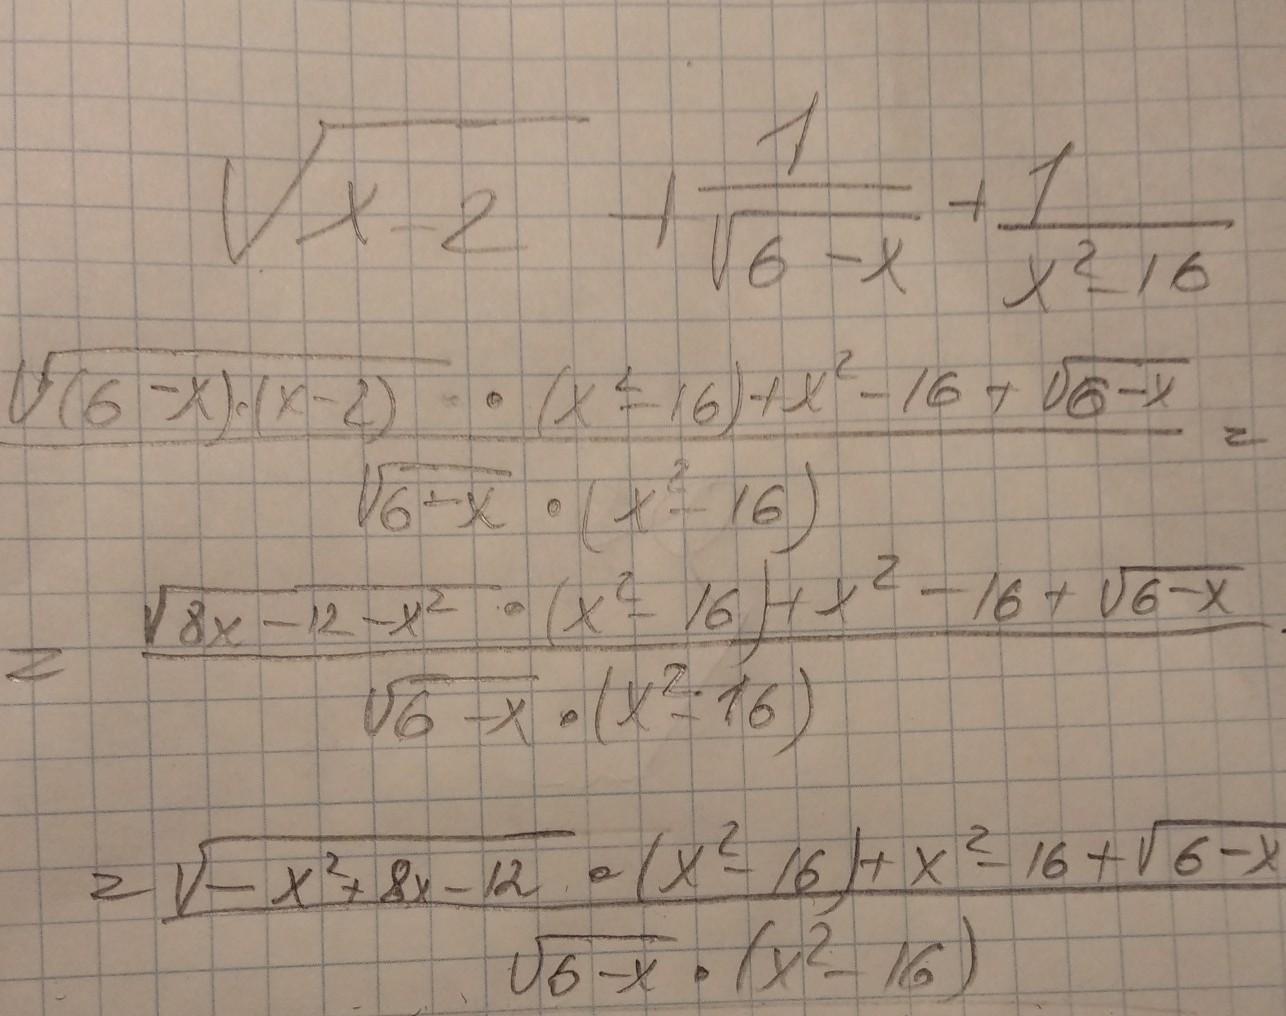 √(x-2) + 1/√(6-x) + 1/(x²-16)
(√((6-x)·(x-2)) · (x²-16)+x²-16+√(6-x))/(√(6-x) · (x²-16)) =
= (√(8x-12-x²) · (x²-16)+x²-16+√(6-x))/(√(6-x) · (x²-16))
= (√(-x²+8x-12) · (x²-16)+x²-16+√(6-x))/(√(6-x) · (x²-16))